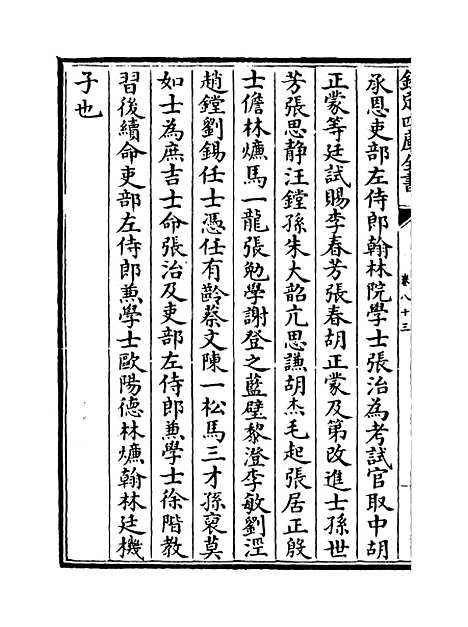 欽定四庫全書
卷八十三
承恩吏部左侍郎翰林院學士張治為考試官取中胡
正蒙等廷試賜李春芳張春胡正蒙及第改進士孫世
芳張思静汪鏜孫朱大韶亢思謙胡杰毛起張居正殷
士儋林爊馬一龍張勉學謝登之藍璧黎澄李敏劉涇
趙鏜劉錫任士憑任有齡蔡文陳一松馬三才孫裒莫
如士為庶吉士命張治及吏部左侍郎兼學士徐階教
習後續命吏部左侍郎兼學士歐陽德林爊翰林廷機
子也